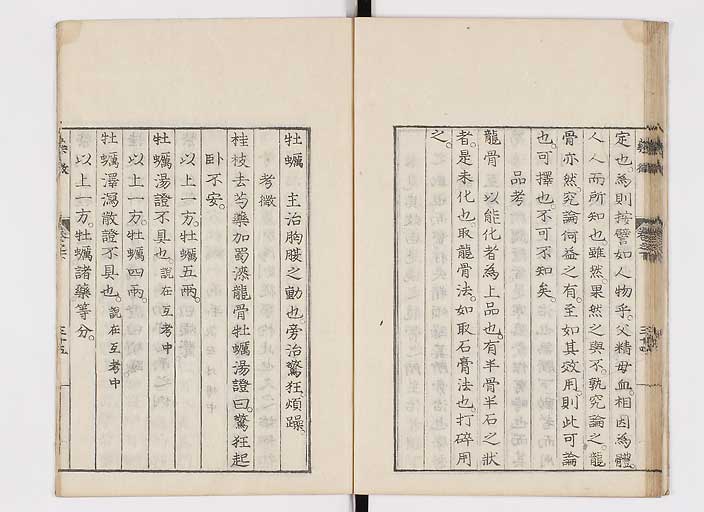 定也為則按譬如人物乎父精母血相因為體
人人而所知也雖然果然之與不孰究論之龍
骨亦然究論何益之有至如其效用則此可論
也可擇也不可不知矣
品考
龍骨以能化者為上品也有半骨半石之狀
者是未化也取龍骨法如取石膏法也打碎用
之
牡蠣 主治胸腹之動也旁治驚狂煩躁
考徵
桂枝去芍藥加蜀漆龍骨牡蠣湯證曰驚狂起
臥不安
以上一方牡蠣五兩
牡蠣湯證不具也說在互考中
以上一方牡蠣四兩
牡蠣澤瀉散證不具也說在互考中
以上一方牡蠣諸藥等分